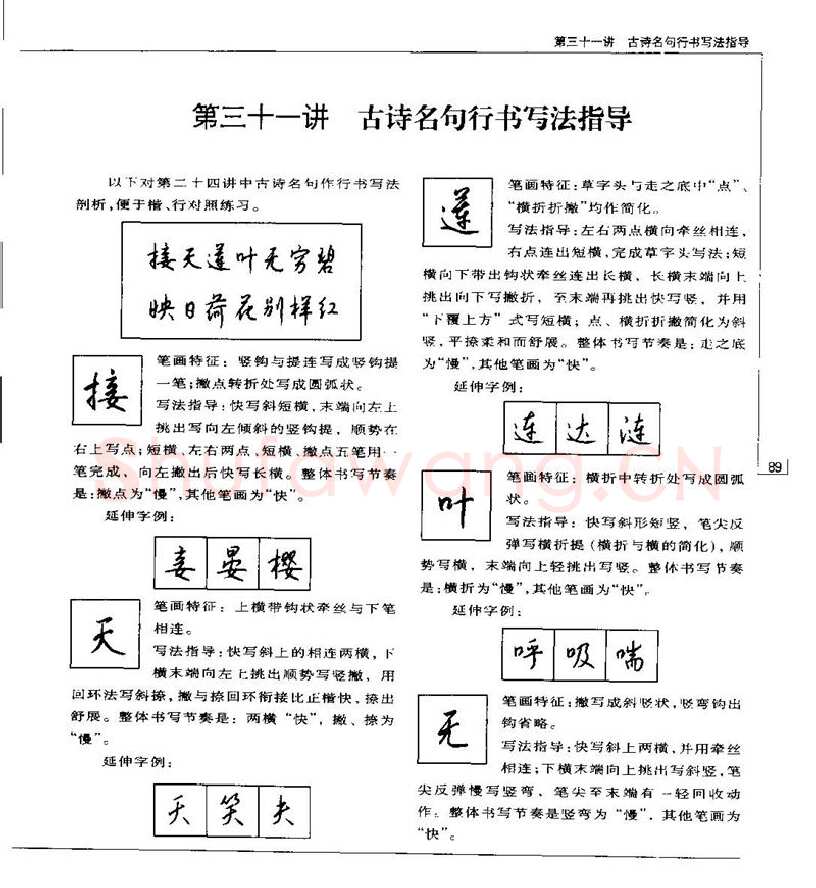 第三十一讲 古诗名句行书写法指导
第三十一讲 古诗名句行书写法指导
以下对第二十四讲中古诗名句作行书写法
剖析,便于楷、行对照练习。
接天莲叶无穷碧
映日荷花别样红
接
笔画特征：竖钩与提连写成竖钩提
一笔;撇点转折处写成圆弧状。
写法指导:快写斜短横,末端向左上
挑出写向左倾斜的竖钩提，顺势在
右上写点;短横、左右两点、短横、撇点五笔用一
笔完成，向左撇出后快写长横。整体书写节奏
是:撇点为“慢”,其他笔画为“快”。
延伸字例：
妾 晏 樱
天
笔画特征：上横带钩状牵丝与下笔
相连。
写法指导:快写斜上的相连两横，下
横末端向左上挑出顺势写竖撇，用
回环法写斜捺,撇与捺回环衔接比正楷快。捺出
舒展。整体书写节奏是：两横“快”，撇、捺为
“慢”。
延伸字例：
夭 笑 夫
莲
笔画特征:草字头与走之底中“点”、
“横折折撇”均作简化。
写法指导:左右两点横向牵丝相连，
右点连出短横,完成草字头写法;短
横向下带出钩状牵丝连出长横，长横末端向上
挑出向下写撇折，至末端再挑出快写竖，并用
“下覆上方”式写短横；点、横折折撇简化为斜
竖,平捺柔和而舒展。整体书写节奏是：走之底
为“慢”,其他笔画为“快”。
延伸字例：
连 达 涟
叶
笔画特征：横折中转折处写成圆弧
状。
写法指导：快写斜形短竖，笔尖反
弹写横折提(横折与横的简化)，顺
势写横，末端向上轻挑出写竖。整体书写节奏
是:横折为“慢”,其他笔画为“快”。
延伸字例：
呼 吸 喘
无
笔画特征:撇写成斜竖状,竖弯钩出
钩省略。
写法指导:快写斜上两横,并用牵丝
相连;下横末端向上挑出写斜竖,笔
尖反弹慢写竖弯，笔尖至末端有一轻回收动
作。整体书写节奏是竖弯为“慢”，其他笔画为
“快”。
89
Shufawang.CN